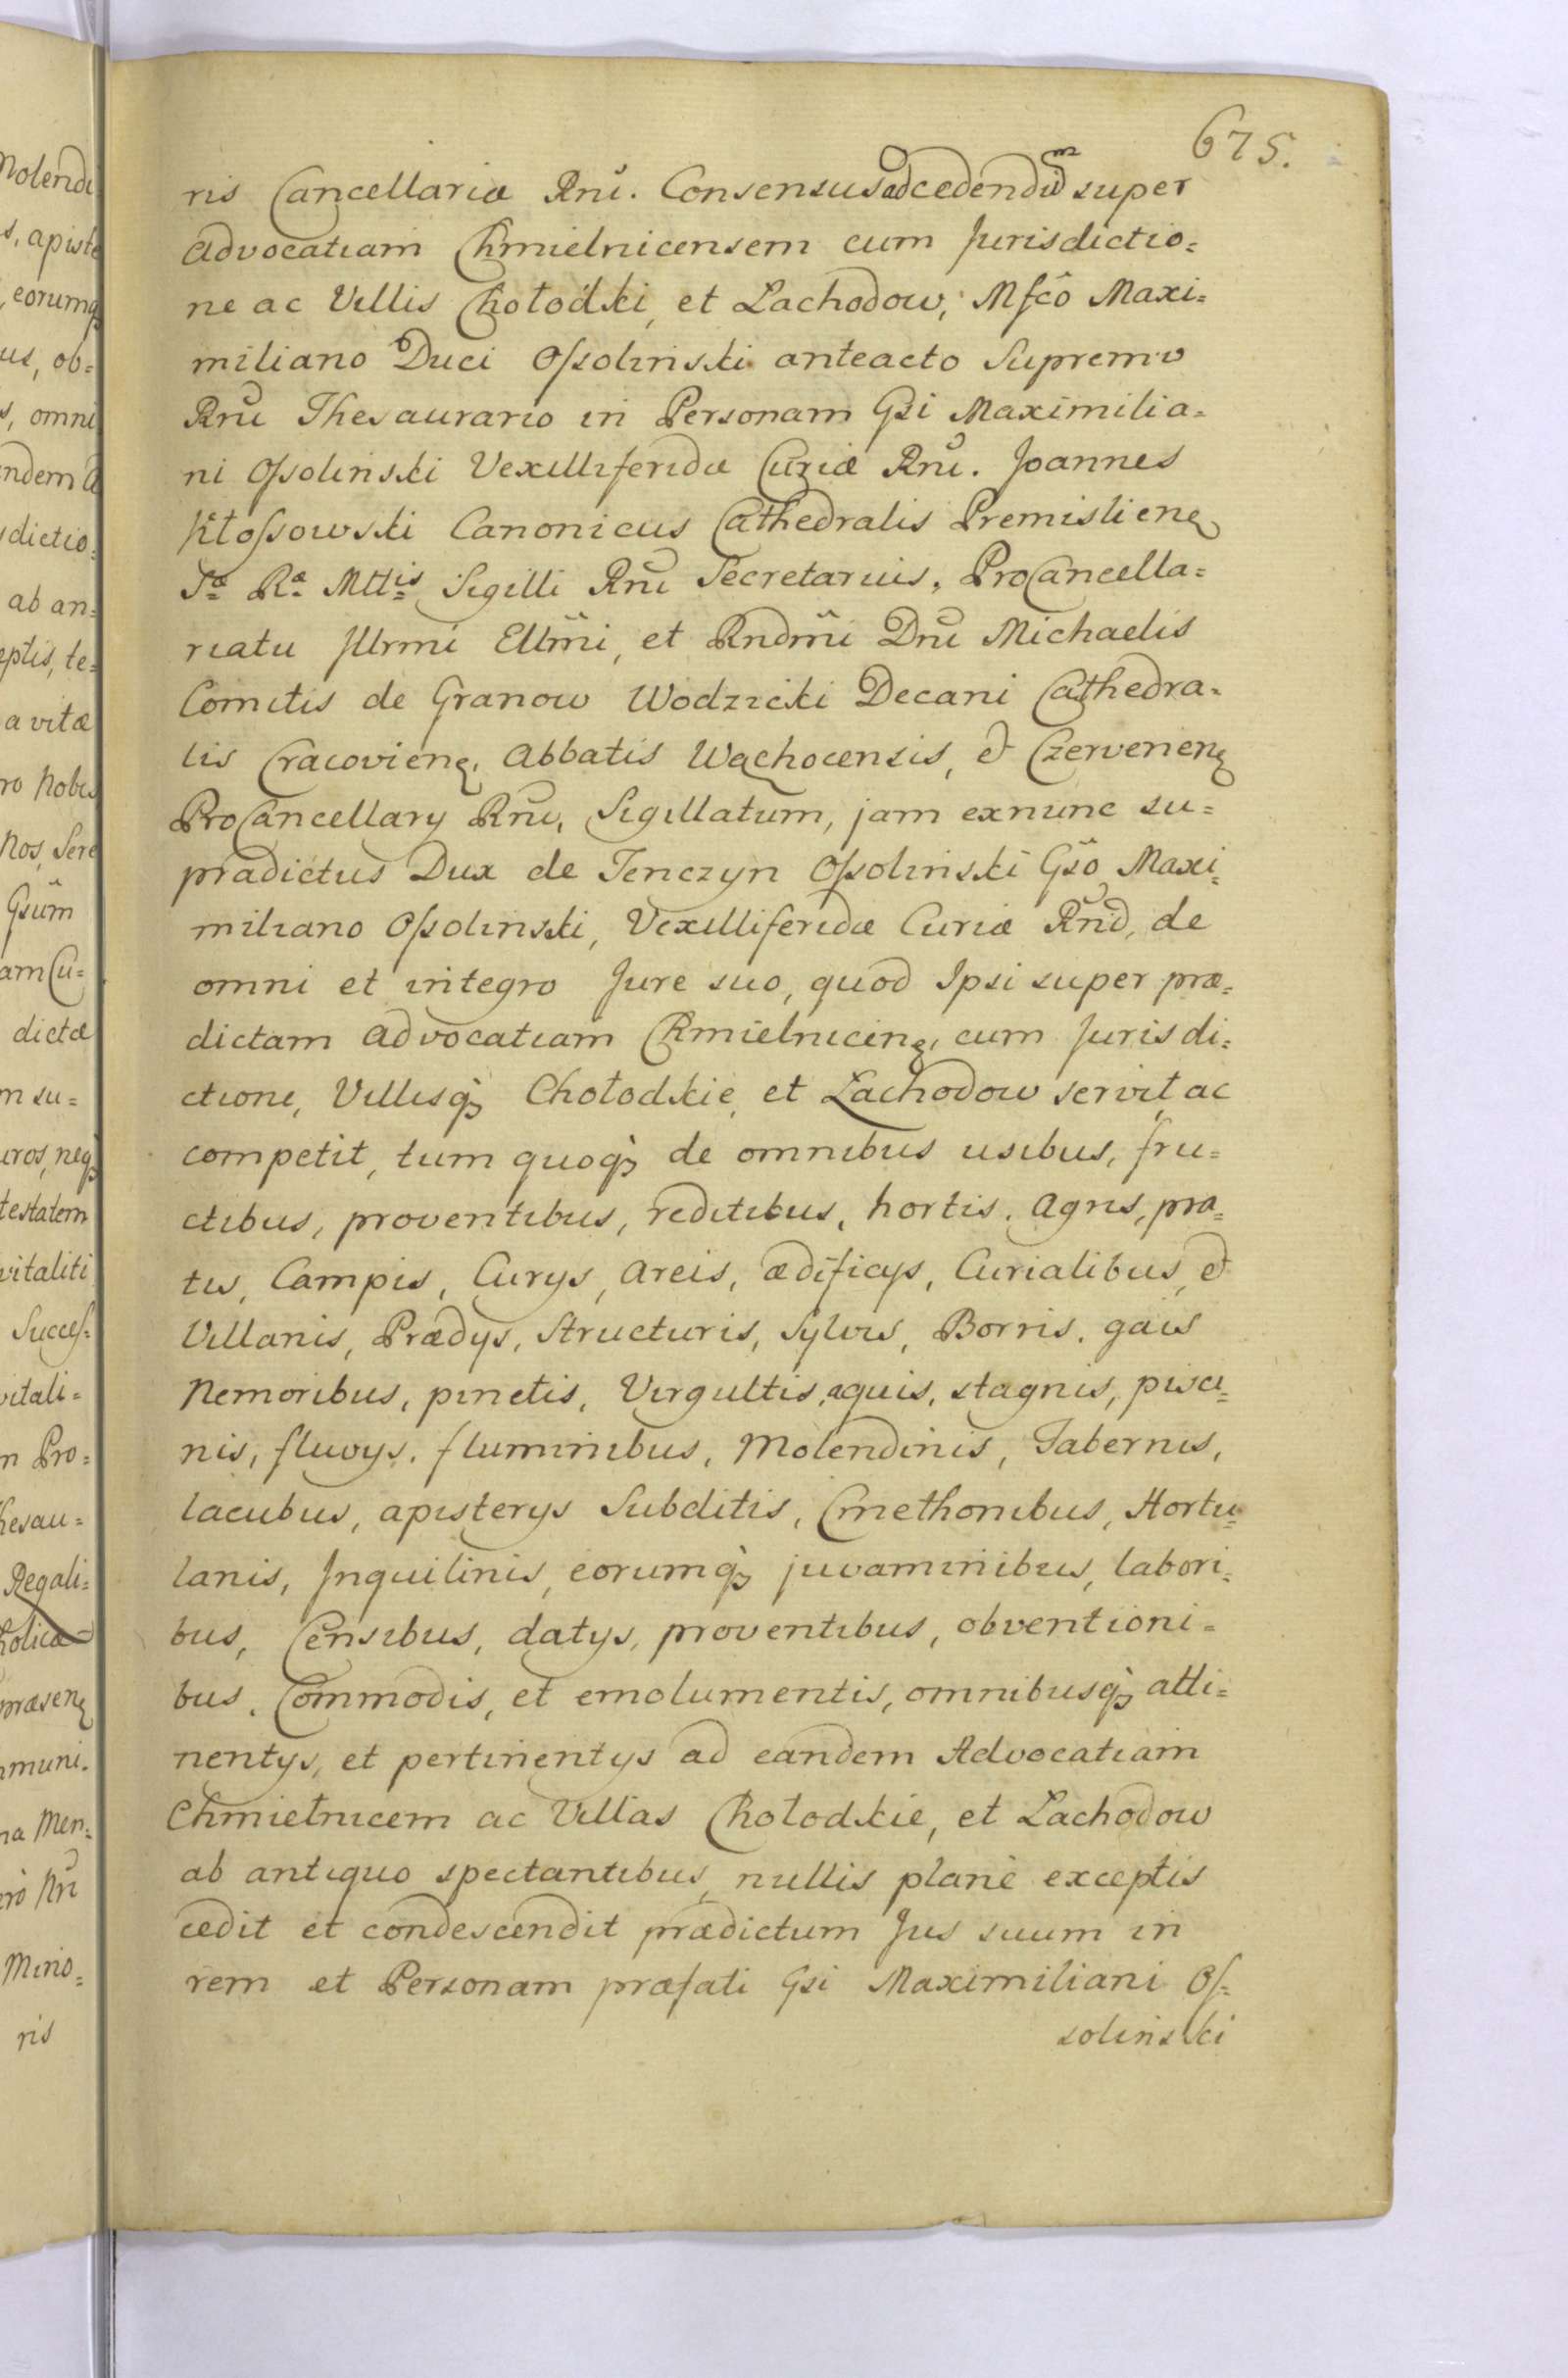 675.
ris Cancellariæ Rnĩ. Consensus ad cedendum super
Advocatiam Chmielnicensem cum Jurisdictio=
ne ac Villis Chołodki, et Lachodow, Mfcô Maxi=
miliano Duci Ossolinski anteacto Supremo
Rnĩ Thesaurario in Personam Gsi Maximilia=
ni Ossolinski Vexilliferidæ Curiæ Rnĩ. Joannes
Kłossowski Canonicus Cathedralis Premislienȩ
Sæ Ræ Mttis Sigilli Rnĩ Secretarius, ProCancella=
riatu Jllrmi Ellm̃i, et Rndm̃i Dnĩ Michaelis
Comitis de Granow Wodzicki Decani Cathedra=
lis Cracovienȩ, Abbatis Wąchocensis, et Czervenenȩ
ProCancellary Rnĩ, Sigillatum, jam exnunc su=
prædictus Dux de Tenczyn Ossolinski Gsõ Maxi=
miliano Ossolinski, Vexilliferidæ Curiæ Rnĩd, de
omni et integro Jure suo, quod Ipsi super præ=
dictam Advocatiam Chmielnicenȩ, cum Jurisdi=
ctione, Villisqȝ Chołodkie, et Lachodow servit ac
competit, tum quoqȝ de omnibus usibus, fru=
ctibus, proventibus, reditibus, hortis, Agris, pra=
tis, Campis, Curys, Areis, ædificys, Curialibus, et
Villanis, Prædys, Structuris, Sylvis, Borris, gais
Nemoribus, pinetis, Virgultis, aquis, stagnis, pisci=
nis, fluvys, fluminibus, Molendinis, Tabernis,
lacubus, apisterys Subditis, Cmethonibus, Hortu=
lanis, Jnquilinis, eorumqȝ juvaminibus, labori=
bus, Censibus, datys, proventibus, obventioni=
bus, Commodis, et emolumentis, omnibusqȝ atti=
nentys, et pertinentys ad eandem Advocatiam
Chmielnicem ac Villas Chołodkie, et Lachodow
ab antiquo spectantibus, nullis planè exceptis
cedit et condescendit prædictum Jus suum in
rem et Personam præfati Gsi Maximiliani Os=
solinski